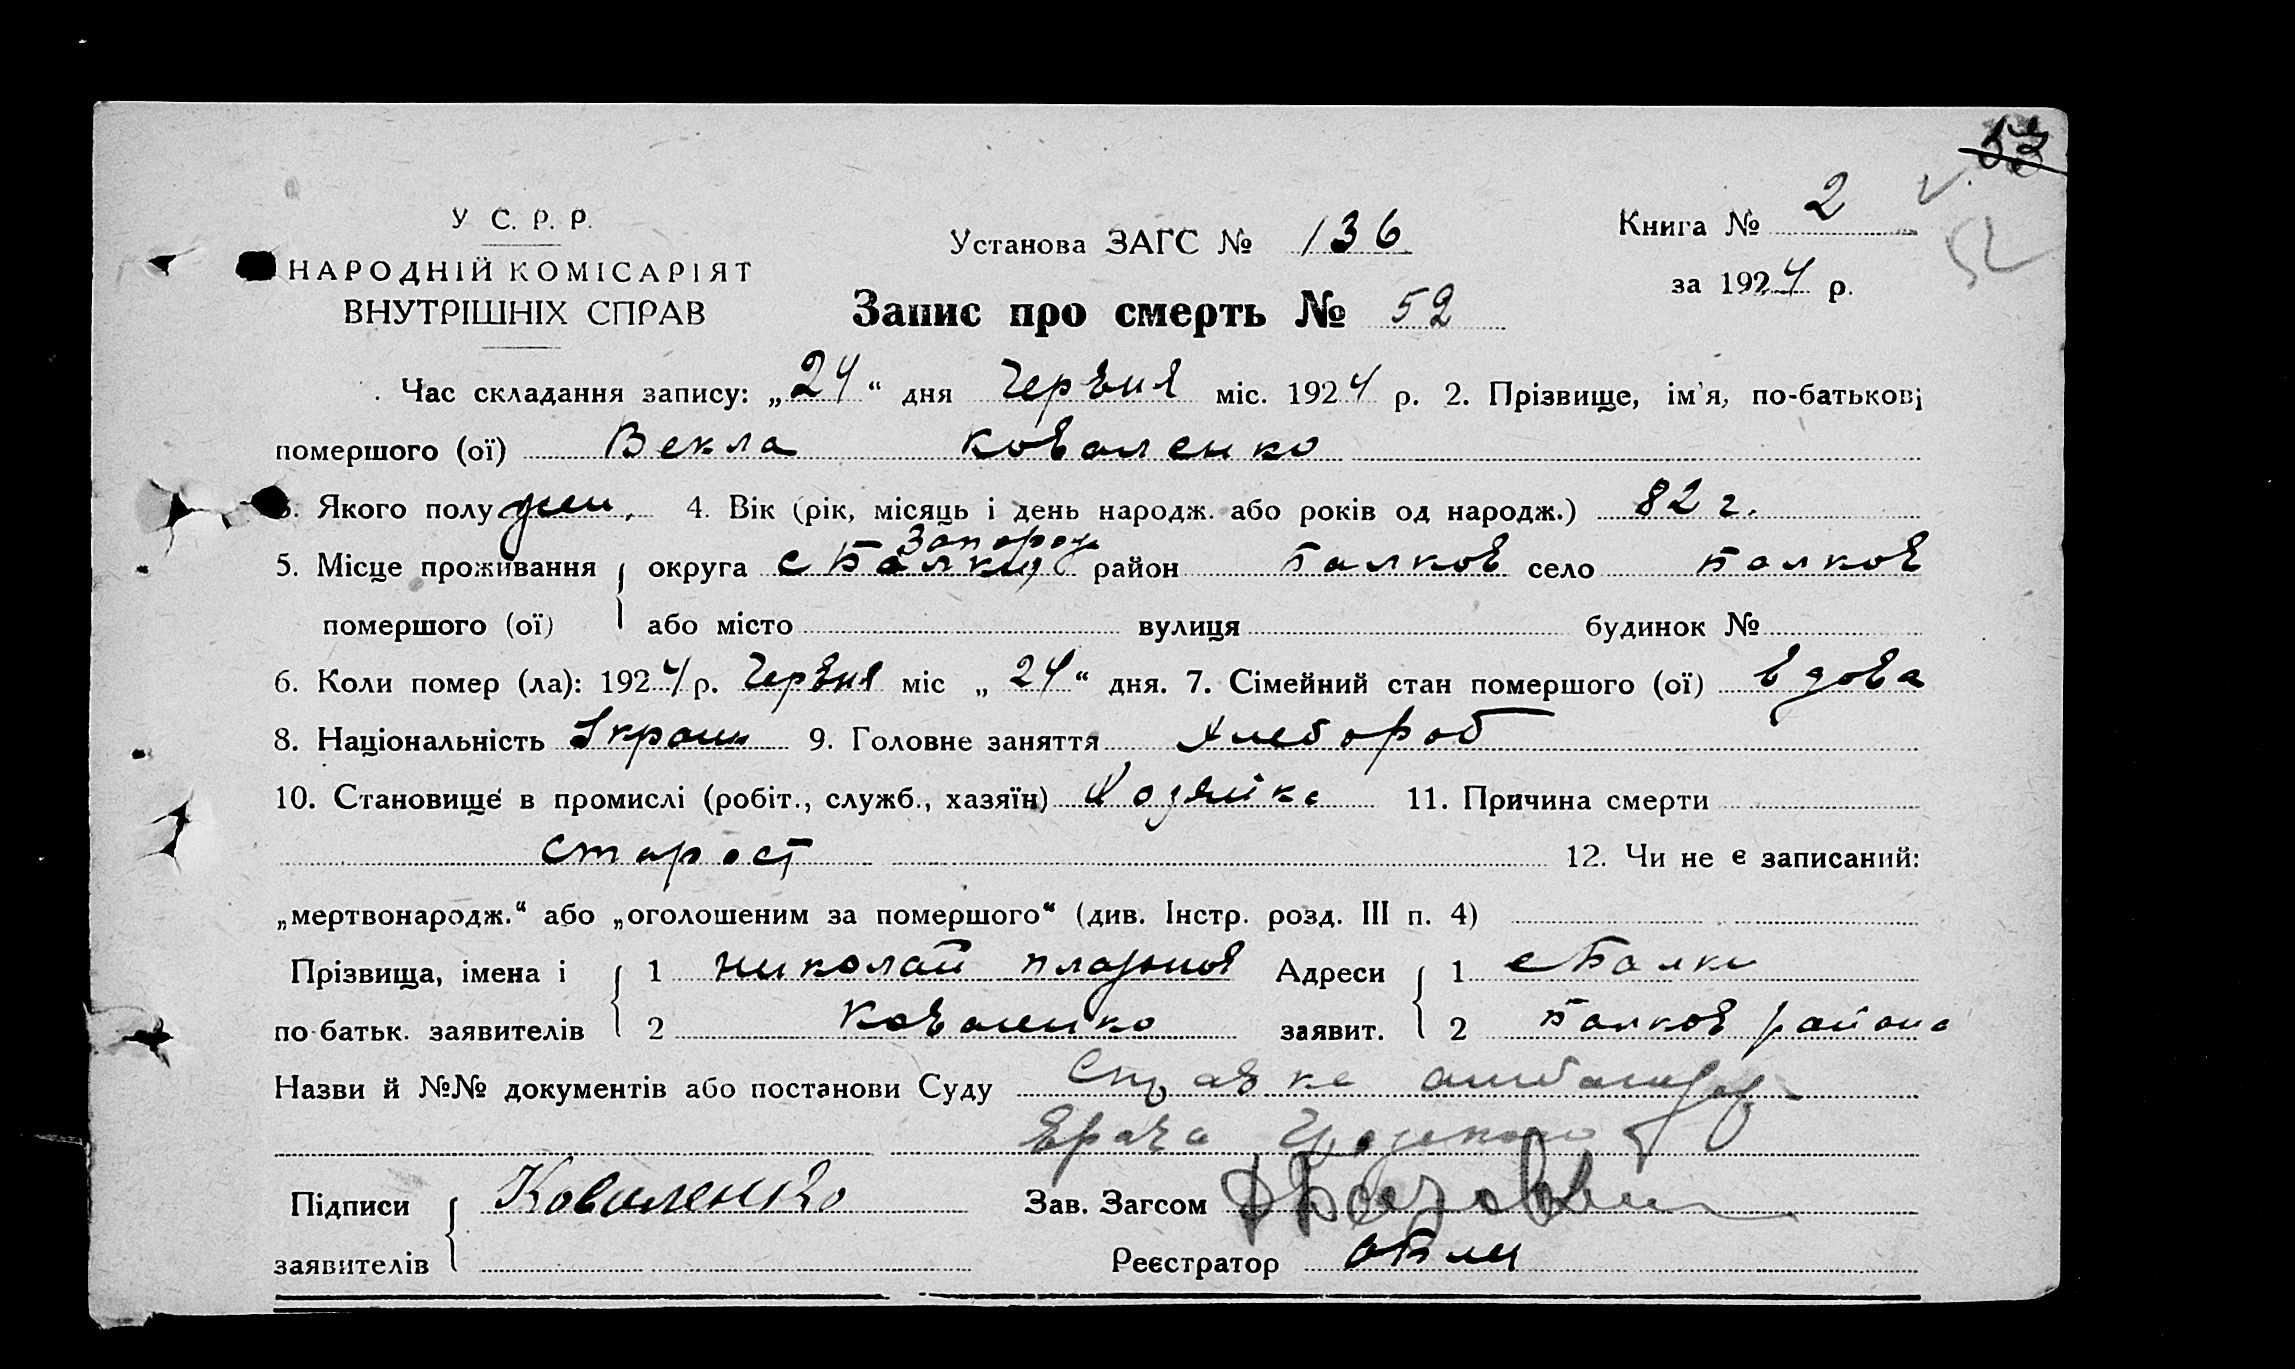 53
У С. Р. Р.
НАРОДНІЙ КОМІСАРІЯТ
ВНУТРІШНІХ СПРАВ
Установа ЗАГС № 136
Книга № 2
за 1924 р.
52
Запис про смерть № 52
Час складання запису: „24“ дня Червня міс. 1924 р. 2. Прізвище, ім'я, по-батькові
помершого (ої) Векла Коваленко
3. Якого полу жен. 4. Вік (рік, місяць і день народж. або років од народж.) 82 г.
Запорож
5. Місце проживання округа с Балки район Балков село Балков
помершого (ої) або місто вулиця будинок №
6. Коли помер (ла): 1924 р. Червня міс „24“ дня. 7. Сімейний стан помершого (ої) вдова
8. Національність Украин 9. Головне заняття Хлебороб
10. Становище в промислі (робіт., служб., хазяїн) Хозяйка 11. Причина смерти
старост 12. Чи не є записаний:
„мертвонародж.“ або „оголошеним за помершого“ (див. Інстр. розд. III п. 4)
Прізвища, імена і 1 Николай Платонов Адреси 1 с Балки
по-батьк. заявителів 2 Коваленко заявит. 2 Балков района
Назви й №№ документів або постанови Суду Справка
Врача
Підписи Коваленко Зав. Загсом
заявителів Реєстратор